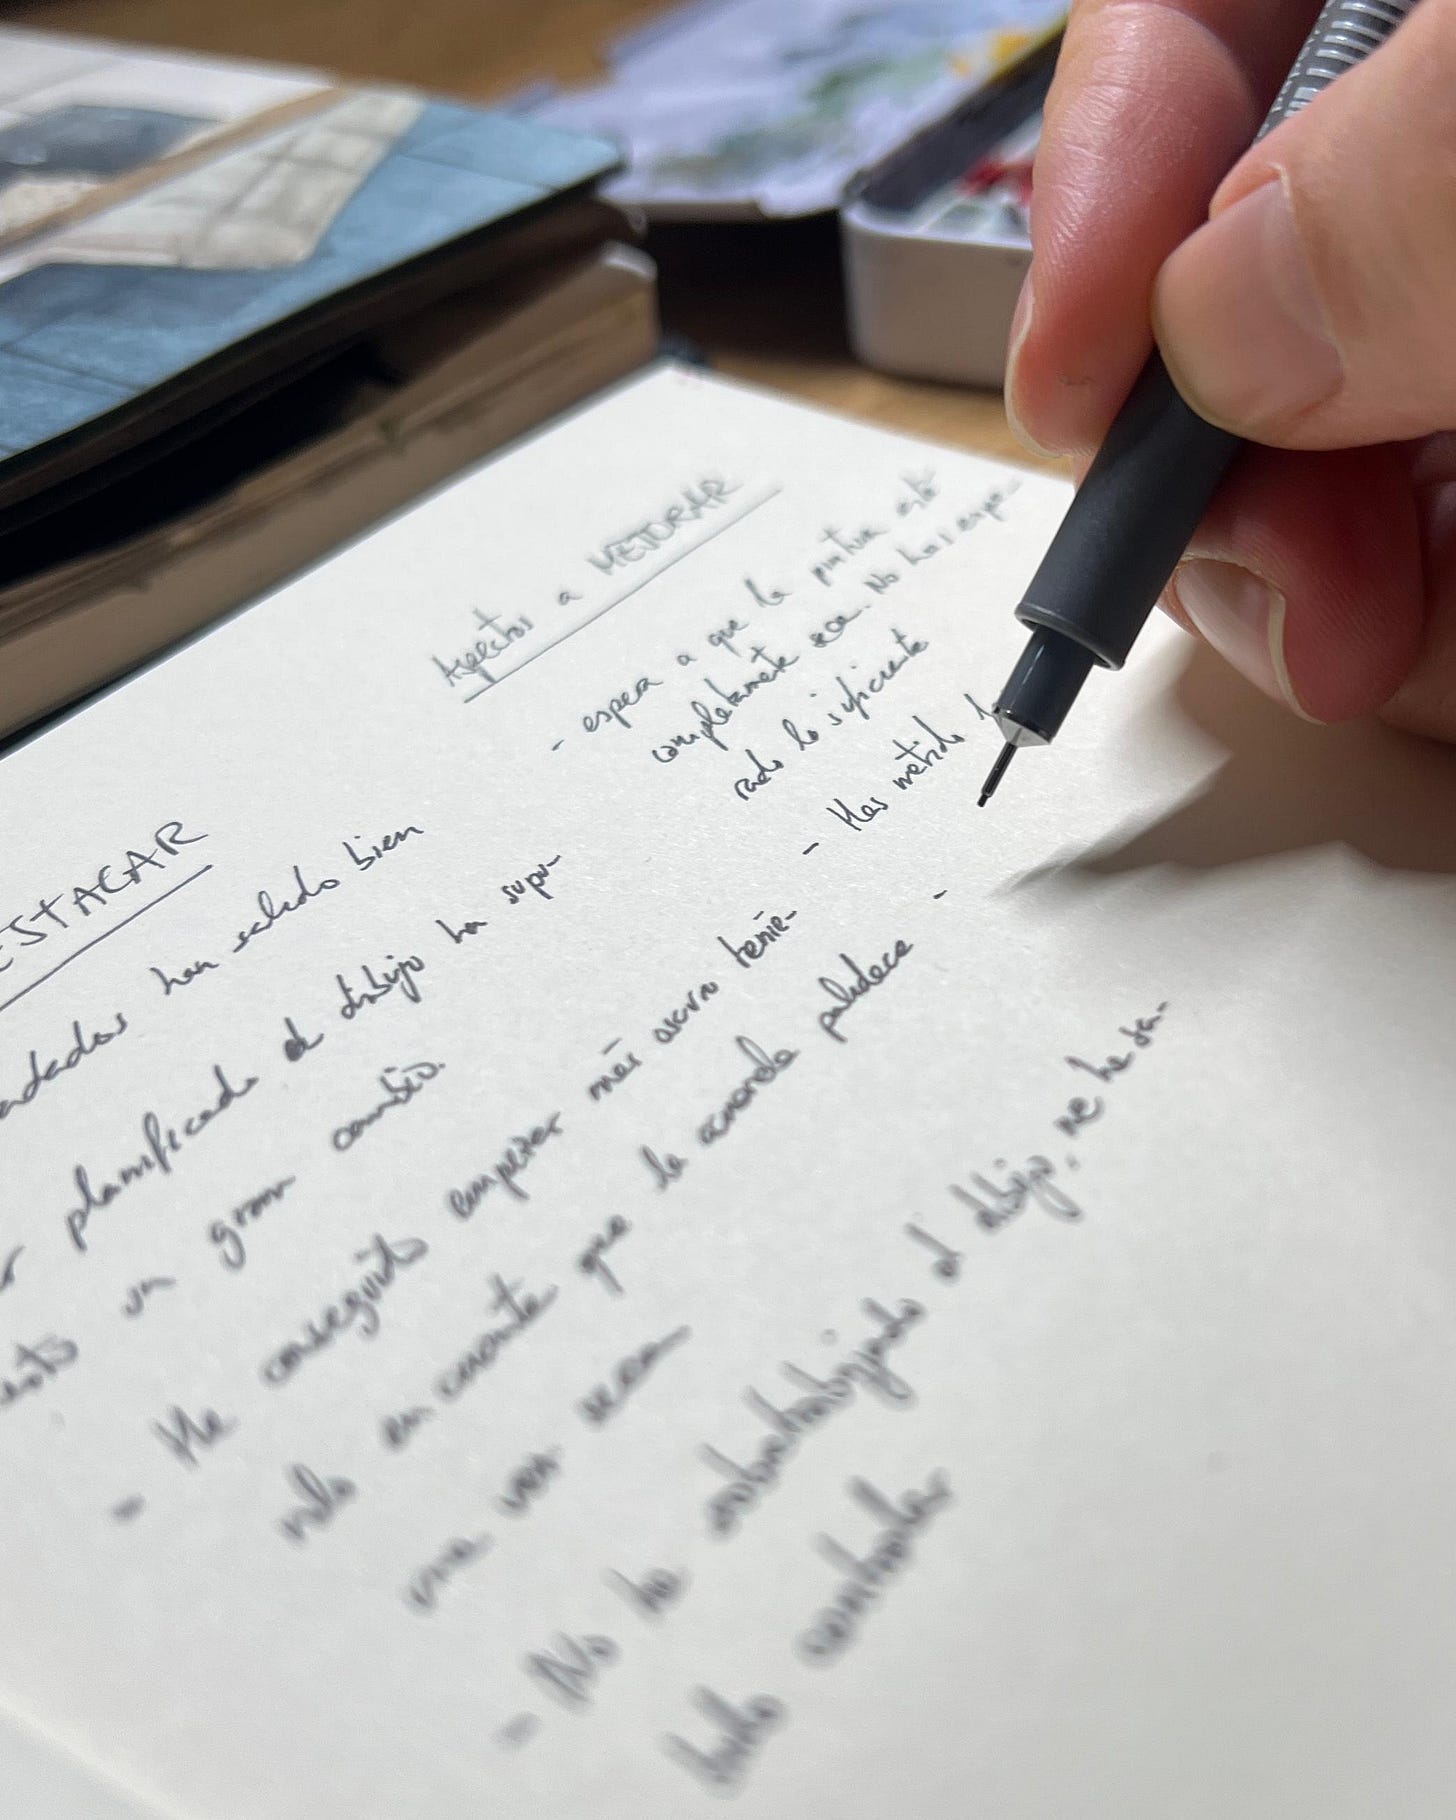 ESTACAR
adados han salido bien
planificado el dibujo ha supu-
ento un gran cambio.
- He conseguido empezar más oscuro tenie-
ndo en cuenta que la acuarela palidece
una vez seca
- No he sobretrabajado el dibujo, me he sa-
bido controlar
Aspectos a MEJORAR
- espera a que la pintura esté
completamente seca. No has espe-
rado lo suficiente
- Has metido
-